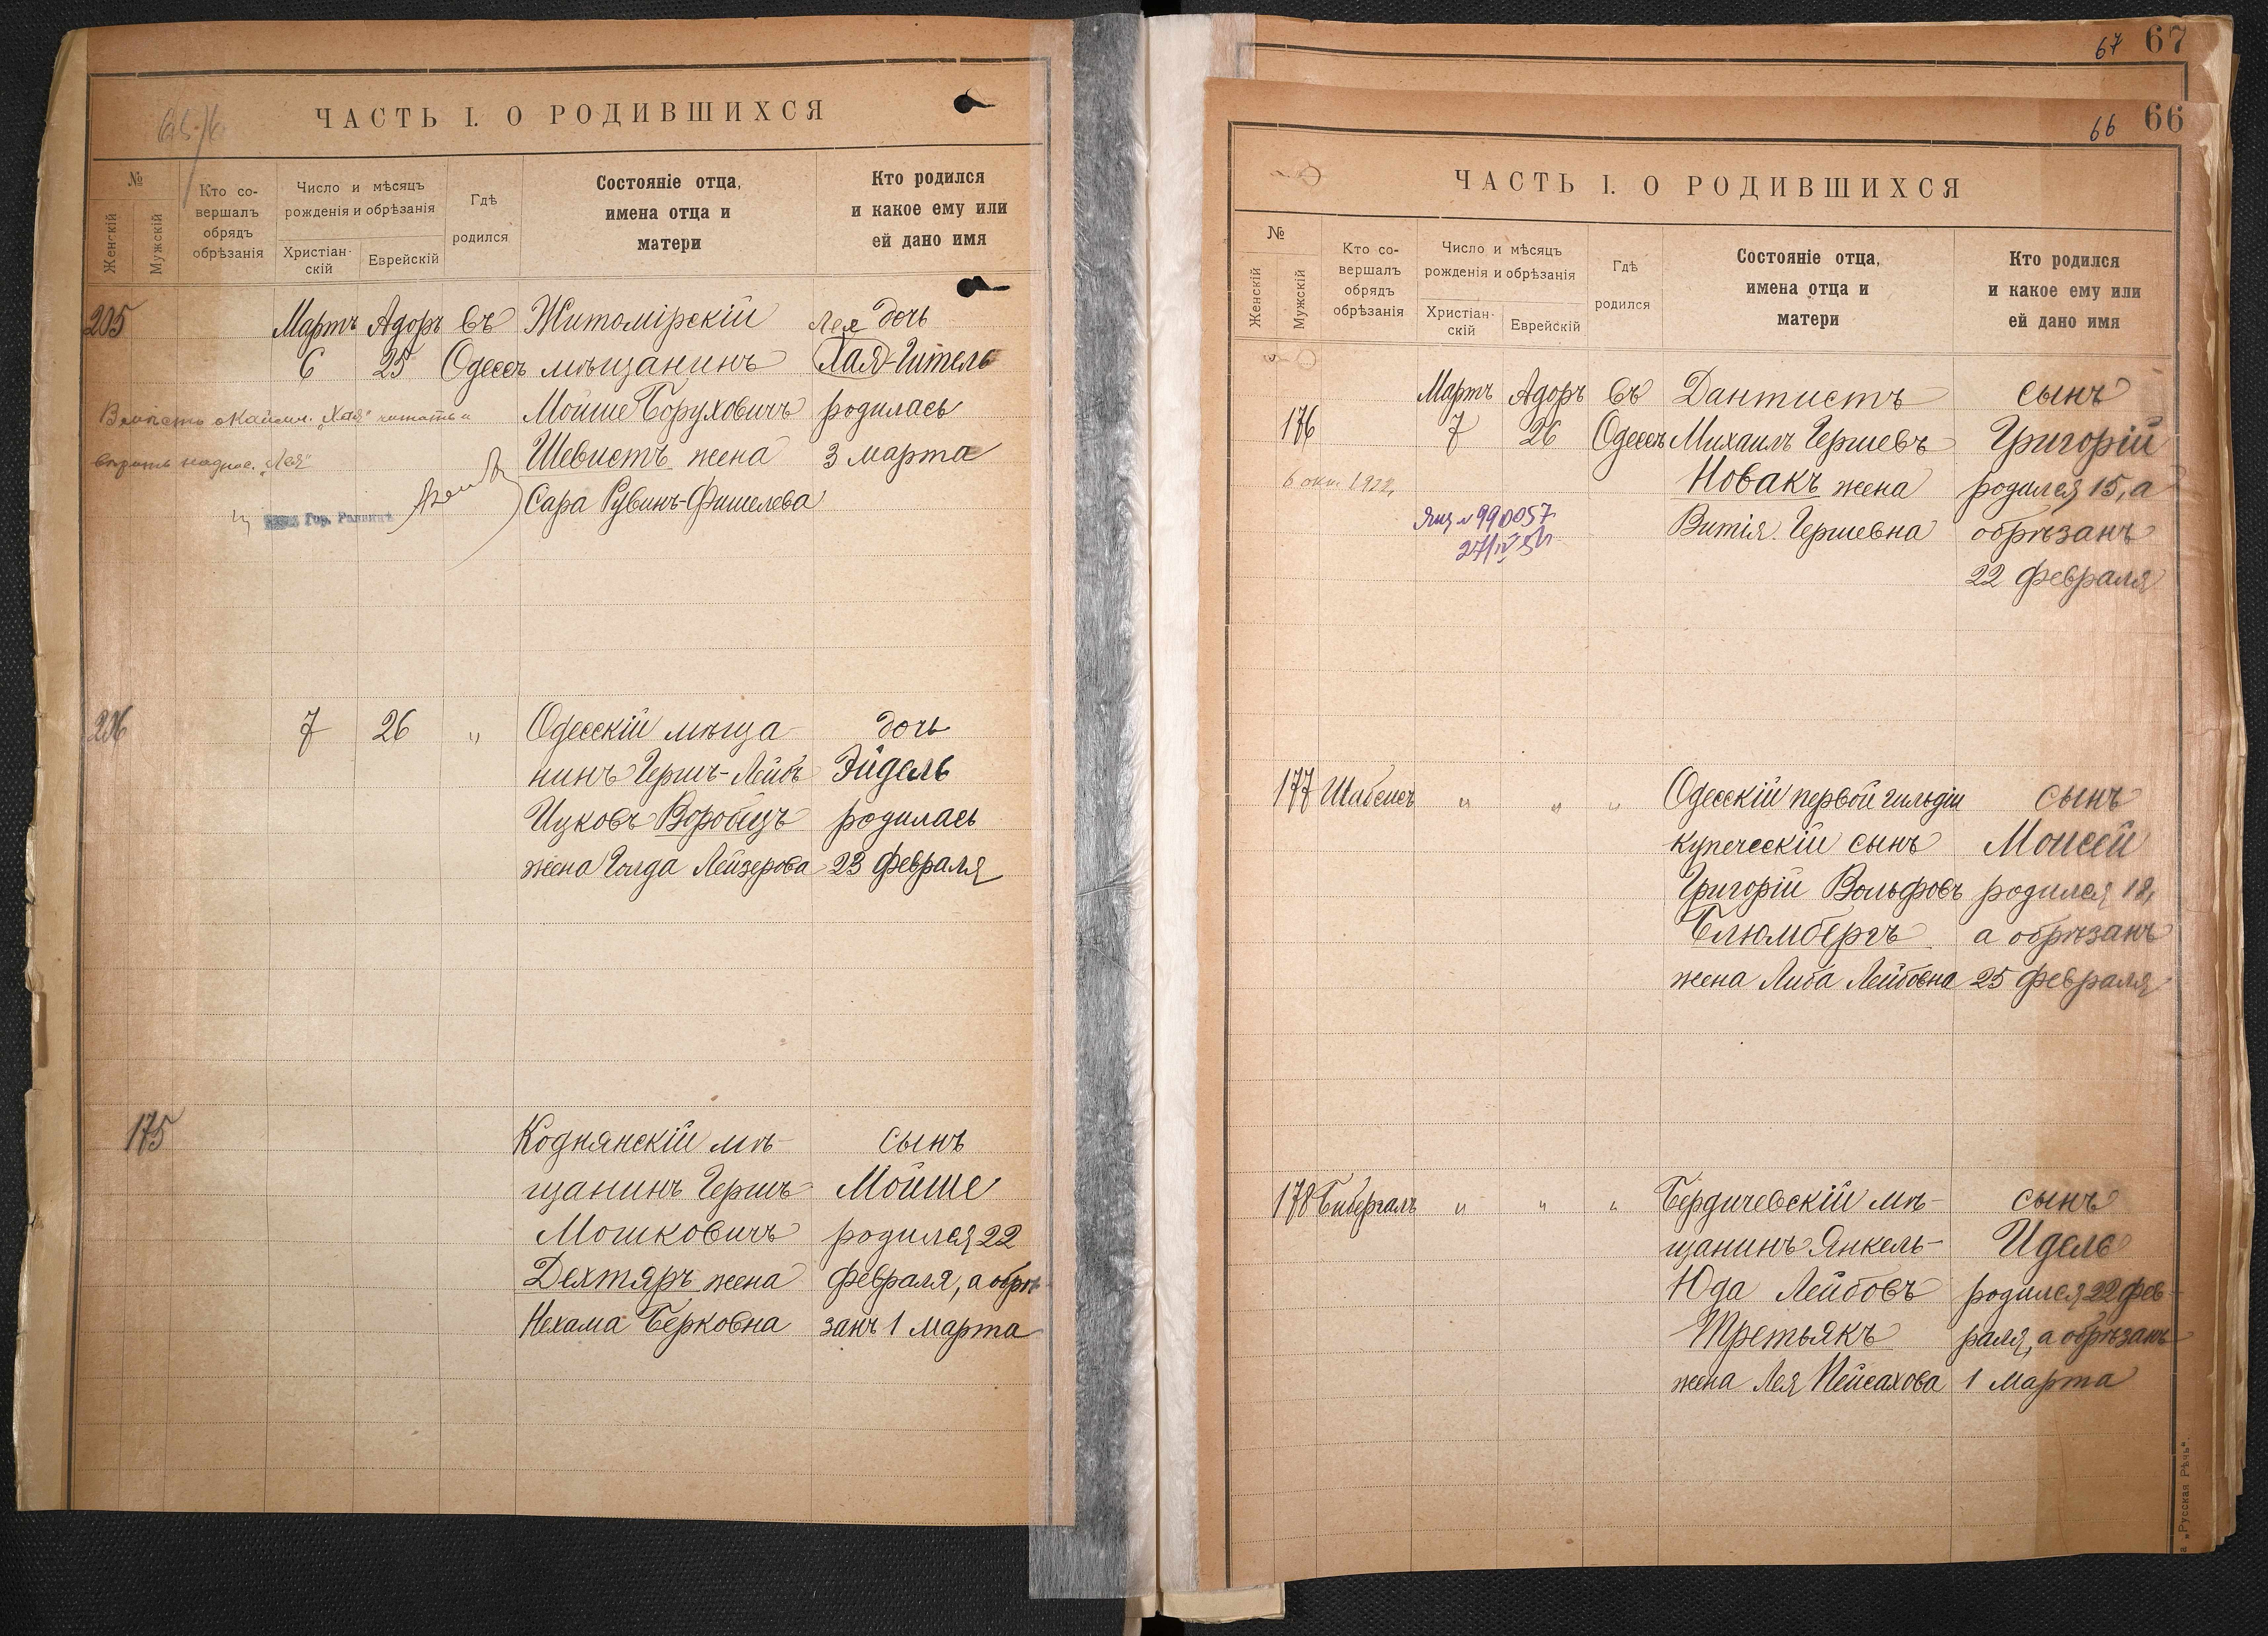 ЧАСТЬ I. О РОДИВШИХСЯ
№
Женскій
Мужскій
Кто со-
вершалъ
обрядъ
обрѣзанія
Число и мѣсяцъ
рожденія и обрѣзанія
Христіан-
скій
Еврейскій
Гдѣ
родился
Состояніе отца,
имена отца и
матери
Кто родился
и какое ему или
ей дано имя
205
Мартъ Адоръ въ Житомірскій Лея дочь
6 25 Одессѣ мѣщанинъ Хая-Гитель
Мойше Боруховичъ родилась
Шевистъ жена 3 марта
Сара Рувинъ-Фишелева
Вмѣсто „Хая“ читать и
вѣрить надпис. „Лея“
Гор. Раввинъ
206 7 26 „ Одесскій мѣща- дочь
нинъ Гершъ-Лейбъ Эйдель
Ицковъ Воробецъ родилась
жена Голда Лейзерова 23 февраля
175 Коднянскій мѣ- сынъ
щанинъ Гершъ Мойше
Мошковичъ родился 22
Дехтяръ жена февраля, а обрѣ-
Нехама Берковна занъ 1 марта
67 67
66 66
ЧАСТЬ I. О РОДИВШИХСЯ
№
Женскій
Мужскій
Кто со-
вершалъ
обрядъ
обрѣзанія
Число и мѣсяцъ
рожденія и обрѣзанія
Христіан-
скій
Еврейскій
Гдѣ
родился
Состояніе отца,
имена отца и
матери
Кто родился
и какое ему или
ей дано имя
Мартъ Адоръ въ Дантистъ сынъ
176 7 26 Одессѣ Михаилъ Гершевъ Григорій
6 окт. 1922 Новакъ жена родился 15, а
№ 990057 Витія Гершевна обрѣзанъ
22 февраля
177 Шабсисъ „ „ „ Одесскій первой гильдіи сынъ
купеческій сынъ Моисей
Григорій Вольфовъ родился 18,
Блюмбергъ а обрѣзанъ
жена Либа Лейбовна 25 февраля
178 Бибергалъ „ „ „ Бердичевскій мѣ- сынъ
щанинъ Янкель- Идель
Юда Лейбовъ родился 22 фев-
Третьякъ раля, а обрѣзанъ
жена Лея Пейсахова 1 марта
„Русская Рѣчь“.